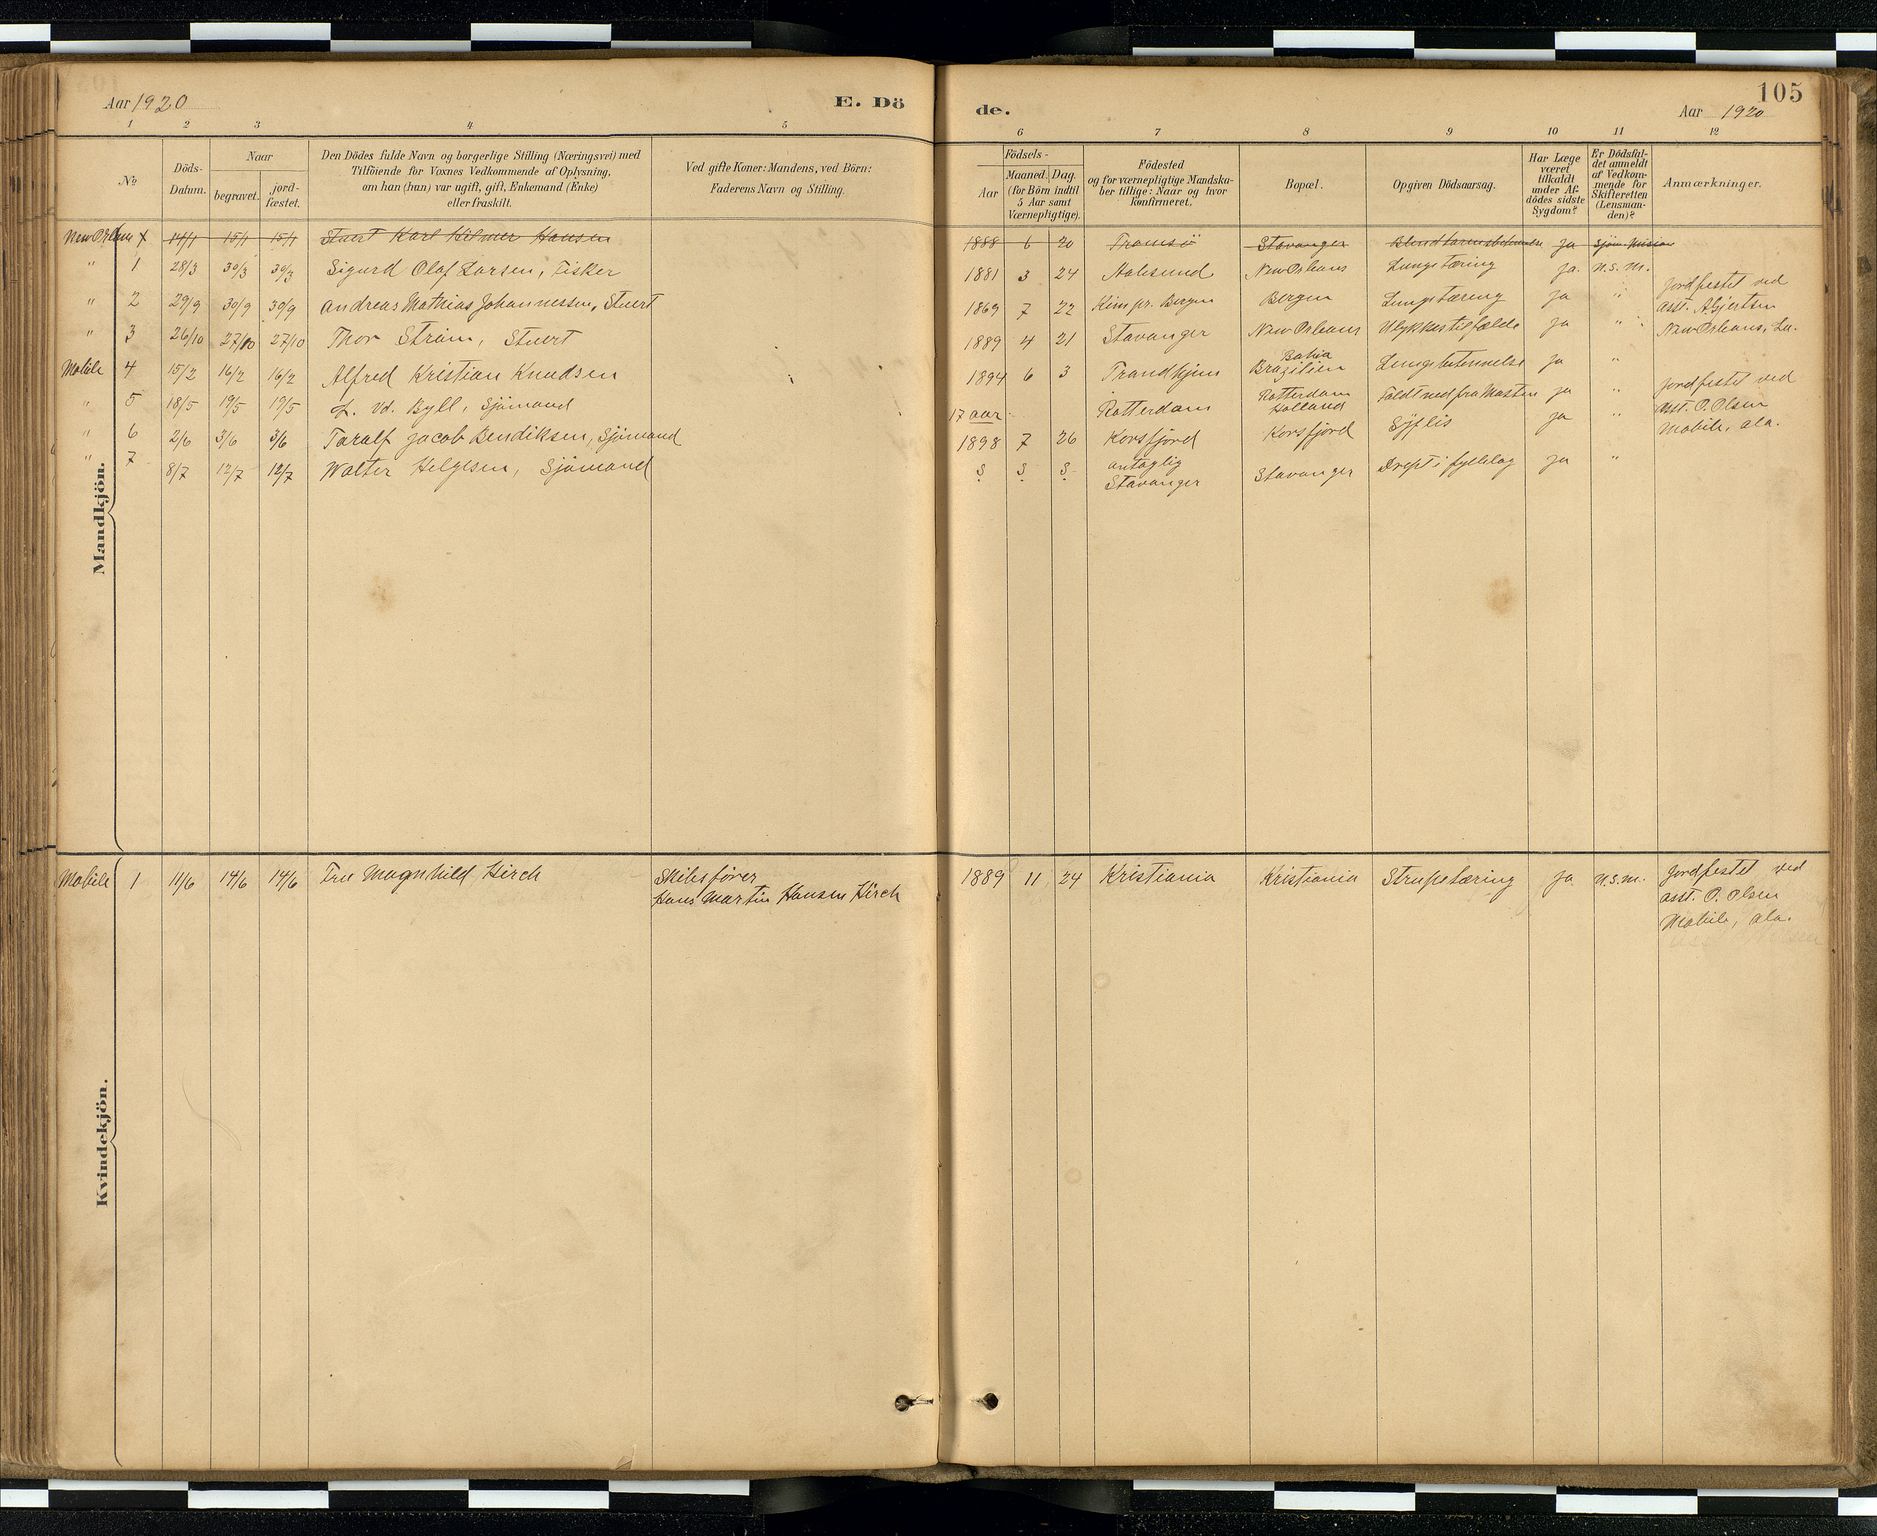 Aar 1920
E. Dö
de.
105
Aar 1920
1 2 3 4 5 6 7 8 9 10 11 12
No
Döds-
Datum.
Naar
begravet.
jord-
fæstet.
Den Dödes fulde Navn og borgerlige Stilling (Næringsvei) med
Tilföiende for Voxnes Vedkommende af Oplysning,
om han (hun) var ugift, gift, Enkemand (Enke)
eller fraskilt.
Ved gifte Koner: Mandens, ved Börn:
Faderens Navn og Stilling.
Födsels-
Aar
Maaned. Dag.
(for Börn indtil
5 Aar samt
Værnepligtige).
Födested
og for værnepligtige Mandska-
ber tillige: Naar og hvor
konfirmeret.
Bopæl.
Opgiven Dödsaarsag.
Har Læge
været
tilkaldt
under Af-
dödes sidste
Sygdom?
Er Dödsfal-
det anmeldt
af Vedkom-
mende for
Skifteretten
(Lensman-
den)?
Anmærkninger.
Mandkjön.
New Orleans 14/1 15/1 15/1 Stuert Karl Hilmer Hansen 1888 6 20 Tromsö Stavanger ja Sjöm. Mission
" 1 28/3 30/3 30/3 Sigurd Olaf Larsen, Fisker 1881 3 24 Aalesund New Orleans Lungetæring ja. n.s.m.
" 2 29/9 30/9 30/9 Andreas Mathias Johannessen, Stuert 1869 7 22 Kinn pr. Bergen Bergen Lungetæring ja " Jordfestet ved
asst. A. Gjertsen
" 3 26/10 27/10 27/10 Thor Ström, Stuert 1889 4 21 Stavanger New Orleans Ulykkestilfælde ja " New Orleans, La.
Mobile 4 15/2 16/2 16/2 Alfred Kristian Knudsen 1894 6 3 Trondhjem Bahia
Brazilien Lungebetennelse ja "
" 5 18/5 19/5 19/5 L. Vd. Byll, Sjömand 17 aar Rotterdam Rotterdam
Holland Faldt ned fra Masten ja " Jordfestet ved
asst. O. Olsen
" 6 2/6 3/6 3/6 Toralf Jacob Bendiksen, Sjömand 1898 7 26 Korsfjord Korsfjord Syflis ja " Mobile, ala.
" 7 8/7 12/7 12/7 Walter Helgesen, Sjömand ? ? ? antaglig
Stavanger Stavanger Drept i fyllelag ja "
Kvindekjön.
Mobile 1 11/6 14/6 14/6 Fru Magnhild Hirch Skibsförer
Hans Martin Hansen Hirch 1889 11 24 Kristiania Kristiania Strupetæring ja n.s.m. Jordfestet ved
asst. O. Olsen
Mobile, ala.